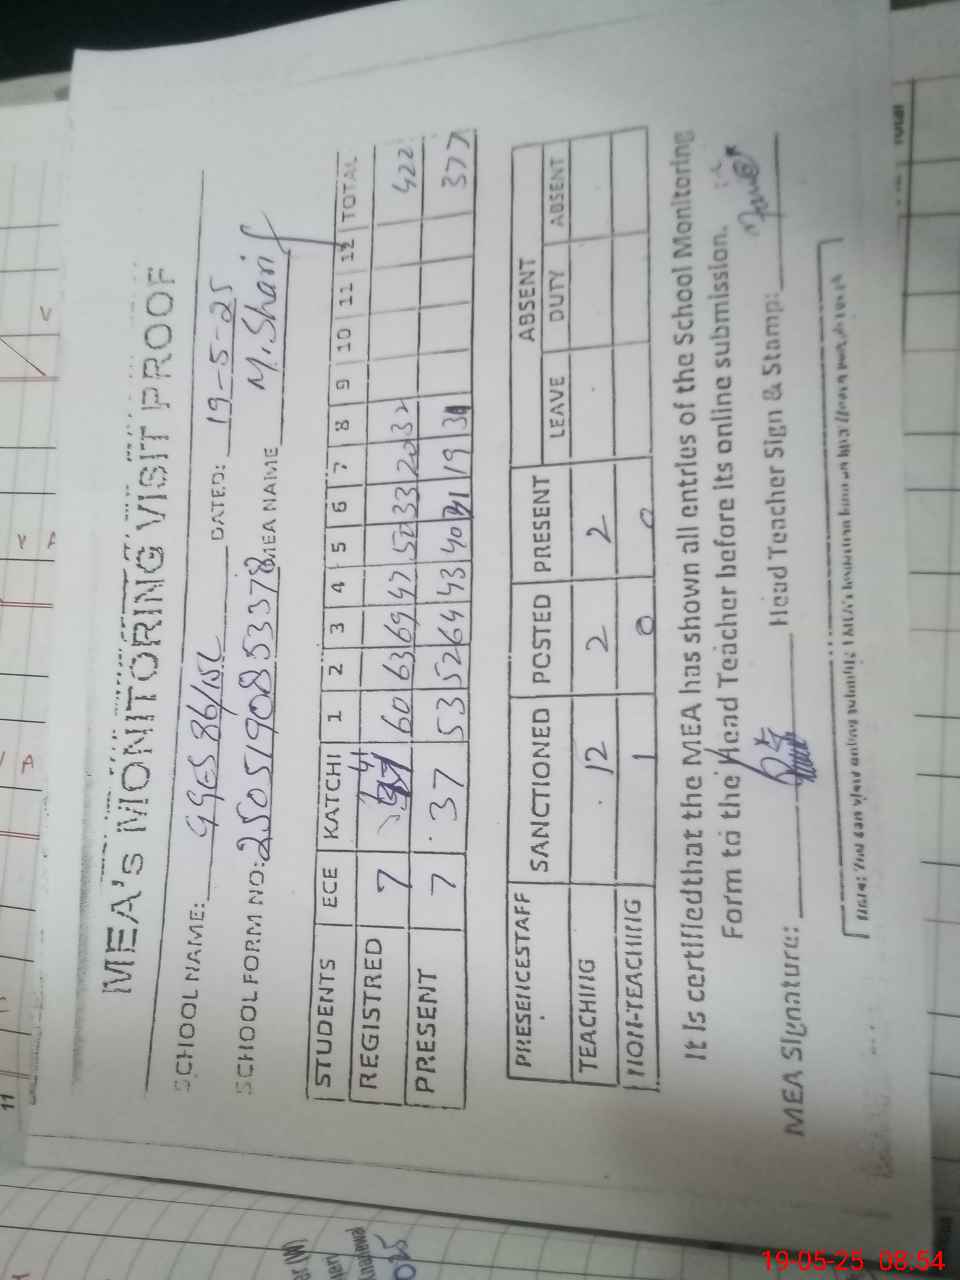 MEA's MONITORING VISIT PROOF
SCHOOL NAME: GGES 86/15L DATED: 19-5-25
SCHOOL FORM NO: 2505190853378 MEA NAME M. Sharif
STUDENTS ECE KATCHI 1 2 3 4 5 6 7 8 9 10 11 12 TOTAL
REGISTRED 7 41 60 63 69 47 50 33 20 32 422
PRESENT 7 37 53 52 64 43 40 31 19 31 377
PRESENCESTAFF SANCTIONED POSTED PRESENT ABSENT
LEAVE DUTY ABSENT
TEACHING 12 2 2
NON-TEACHING 1 0 0
It is certifiedthat the MEA has shown all entries of the School Monitoring
Form to the Head Teacher before its online submission.
MEA Signature: Head Teacher Sign & Stamp:
Note: You can view online
11
Total
19-05-25 08:54